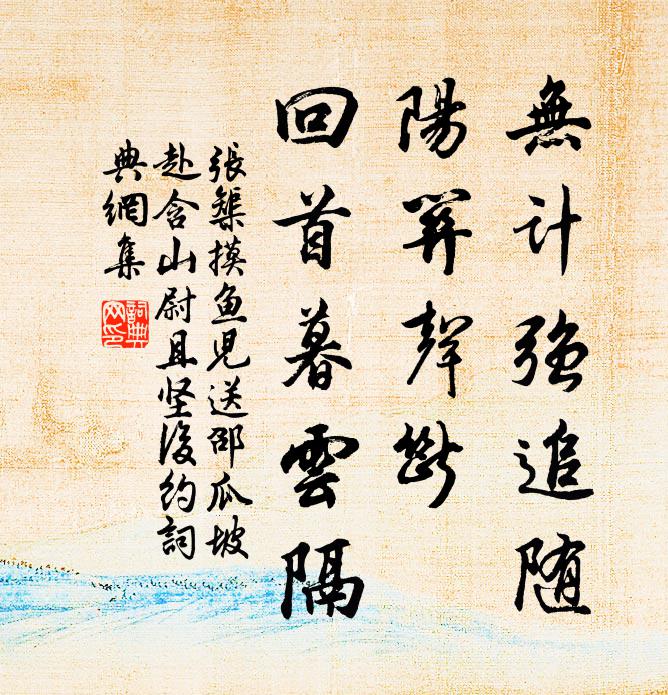 無计强追随
陽關聲斷
回首暮雲隔
張榘摸鱼兒送邵瓜坡
赴含山尉且坚後约詞
典網集
詞典
网印